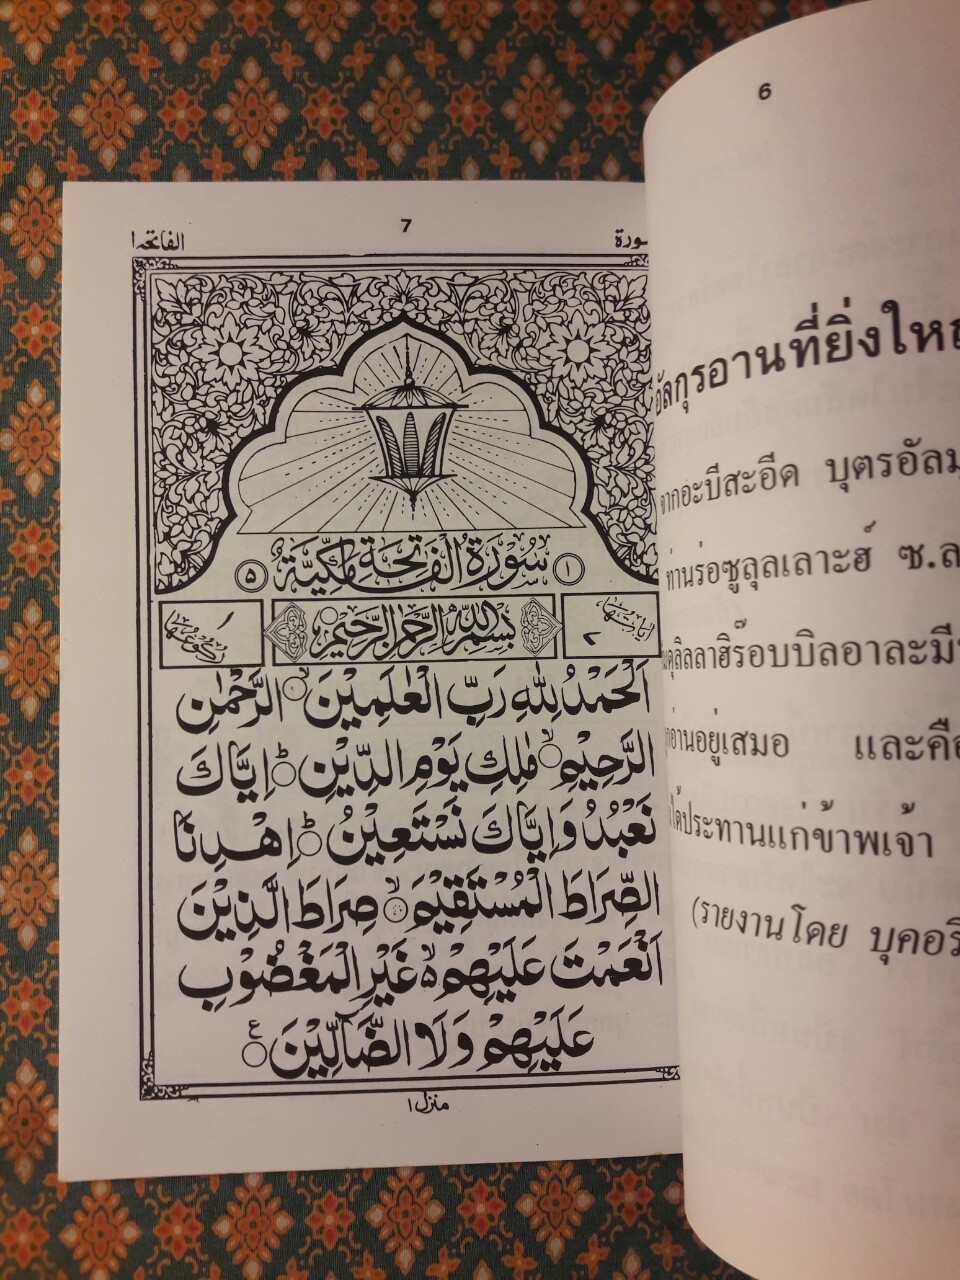 7
الفاتحة ١
سورة
سُوْرَةُ الْفَاتِحَةِ مَكِّيَّةٌ
١
٥
اٰيَاتُهَا
رُكُوْعُهَا ١
بِسْمِ اللّٰهِ الرَّحْمٰنِ الرَّحِيْمِ
اَلْحَمْدُ لِلّٰهِ رَبِّ الْعٰلَمِيْنَ ۙ الرَّحْمٰنِ
الرَّحِيْمِ ۙ مٰلِكِ يَوْمِ الدِّيْنِ ؕ اِيَّاكَ
نَعْبُدُ وَاِيَّاكَ نَسْتَعِيْنُ ؕ اِهْدِنَا
الصِّرَاطَ الْمُسْتَقِيْمَ ۙ صِرَاطَ الَّذِيْنَ
اَنْعَمْتَ عَلَيْهِمْ ۙ غَيْرِ الْمَغْضُوْبِ
عَلَيْهِمْ وَلَا الضَّآلِّيْنَ ع
منزل ١
6
อัลกุรอานที่ยิ่งให
จากอะบีสะอีด บุตรอัลมุ
ท่านร่อซูลุลเลาะฮ์ ซ.ล
ดุลิลลาฮิร๊อบบิลอาละมี
อ่านอยู่เสมอ และคือ
ได้ประทานแก่ข้าพเจ้า
(รายงานโดย บุคอรี